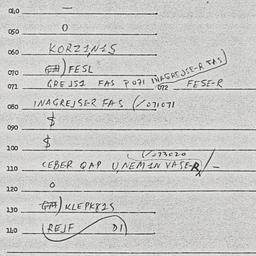 040 —
050 0
060 KORZ1N1S
070 GA) FESL
071 GREJS1 FAS P071 INAGREJSE-R FAS 072 FESE-R
080 INAGREJSER FAS (/071071
090 $
$
100 (/073020
110 CEBER QAP U,NEMIN VASER/ —
120 0
130 GA) KLEPK81S
140 (REJF D1)